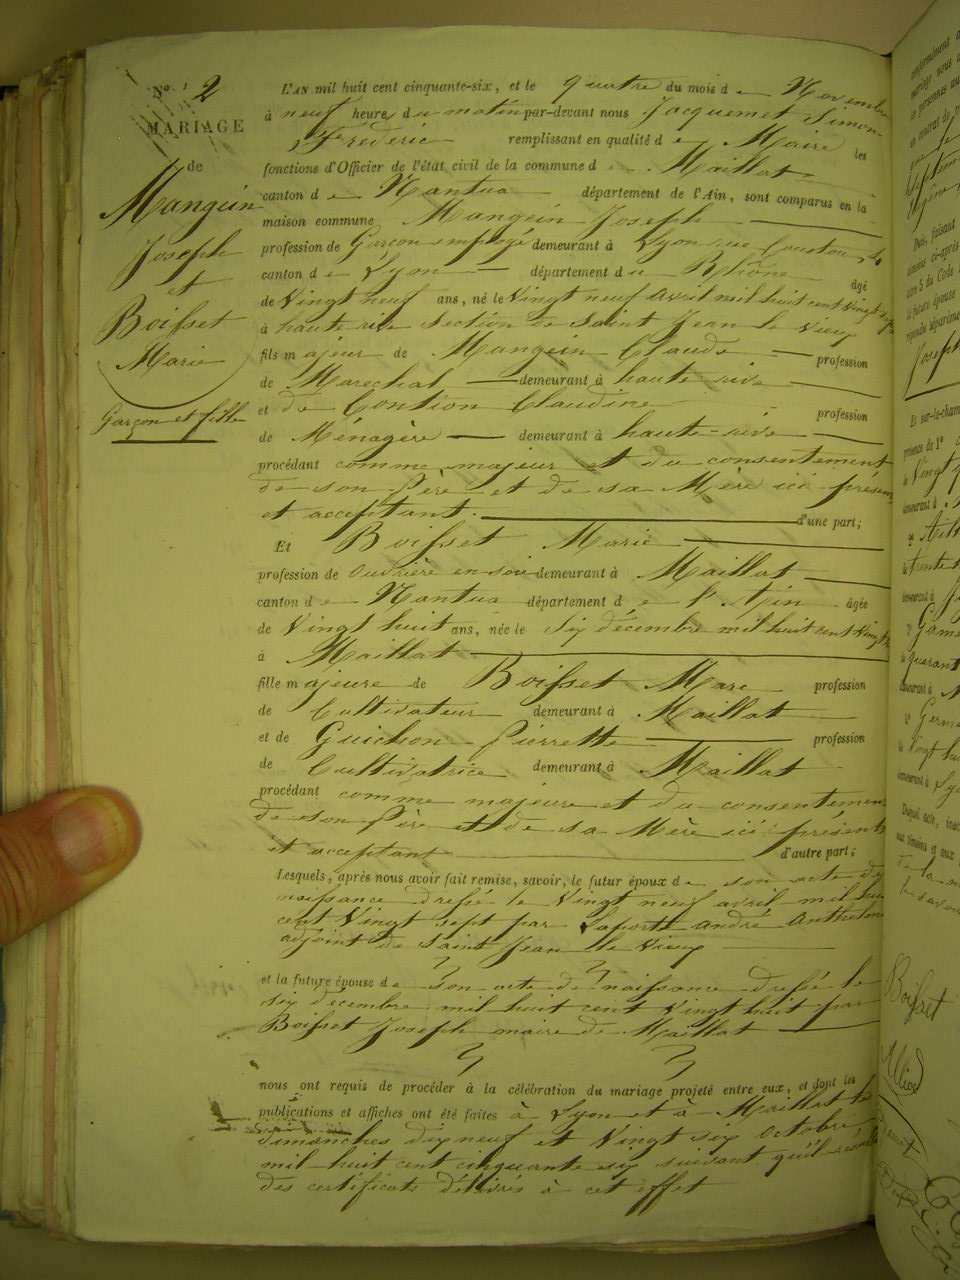 No. 2
MARIAGE
de
Mangein
Joseph
et
Boisset
Marie
Garçon et fille
L'AN mil huit cent cinquante-six, et le quatre du mois de Novembre
à neuf heures du matin par-devant nous Jacquemet Simon
Fréderic remplissant en qualité de Maire les
fonctions d'Officier de l'état civil de la commune de Maillat
canton de Nantua département de l'Ain, sont comparus en la
maison commune Mangein Joseph
profession de Garçon employé demeurant à Lyon rue Coustou,
canton de Lyon département du Rhône âgé
de Vingt neuf ans, né le Vingt neuf avril mil huit cent vingt sept
à haute rive section de Saint Jean le Vieux
fils majeur de Mangein Claude profession
de Marechal demeurant à haute rive
et de Claudine profession
de Ménagère demeurant à haute-rive
procédant comme majeur et du consentement
de son Père et de sa Mère ici présents
et acceptant. d'une part;
Et Boisset Marie
profession de ouvrière en soie demeurant à Maillat
canton de Nantua département de l'Ain âgée
de Vingt huit ans, née le Six décembre mil huit cent vingt
à Maillat
fille majeure de Boisset Marc profession
de Cultivateur demeurant à Maillat
et de Guichon Pierrette profession
de Cultivatrice demeurant à Maillat
procédant comme majeure et du consentement
de son Père et de sa Mère ici présents
et acceptant d'autre part;
Lesquels, après nous avoir fait remise, savoir, le futur époux de son acte de
naissance dressé le Vingt neuf avril mil huit
cent Vingt sept par Laporte andré Anthelme
adjoint de Saint Jean le Vieux
et la future épouse de son acte de naissance dressé le
six décembre mil huit cent vingt huit par
Boisset Joseph maire de Maillat
nous ont requis de procéder à la célébration du mariage projeté entre eux, et dont les
publications et affiches ont été faites à Lyon et à Maillat le
dimanches dix neuf et Vingt six octobre
mil huit cent cinquante six suivant qu'il
des certificats délivrés à cet effet